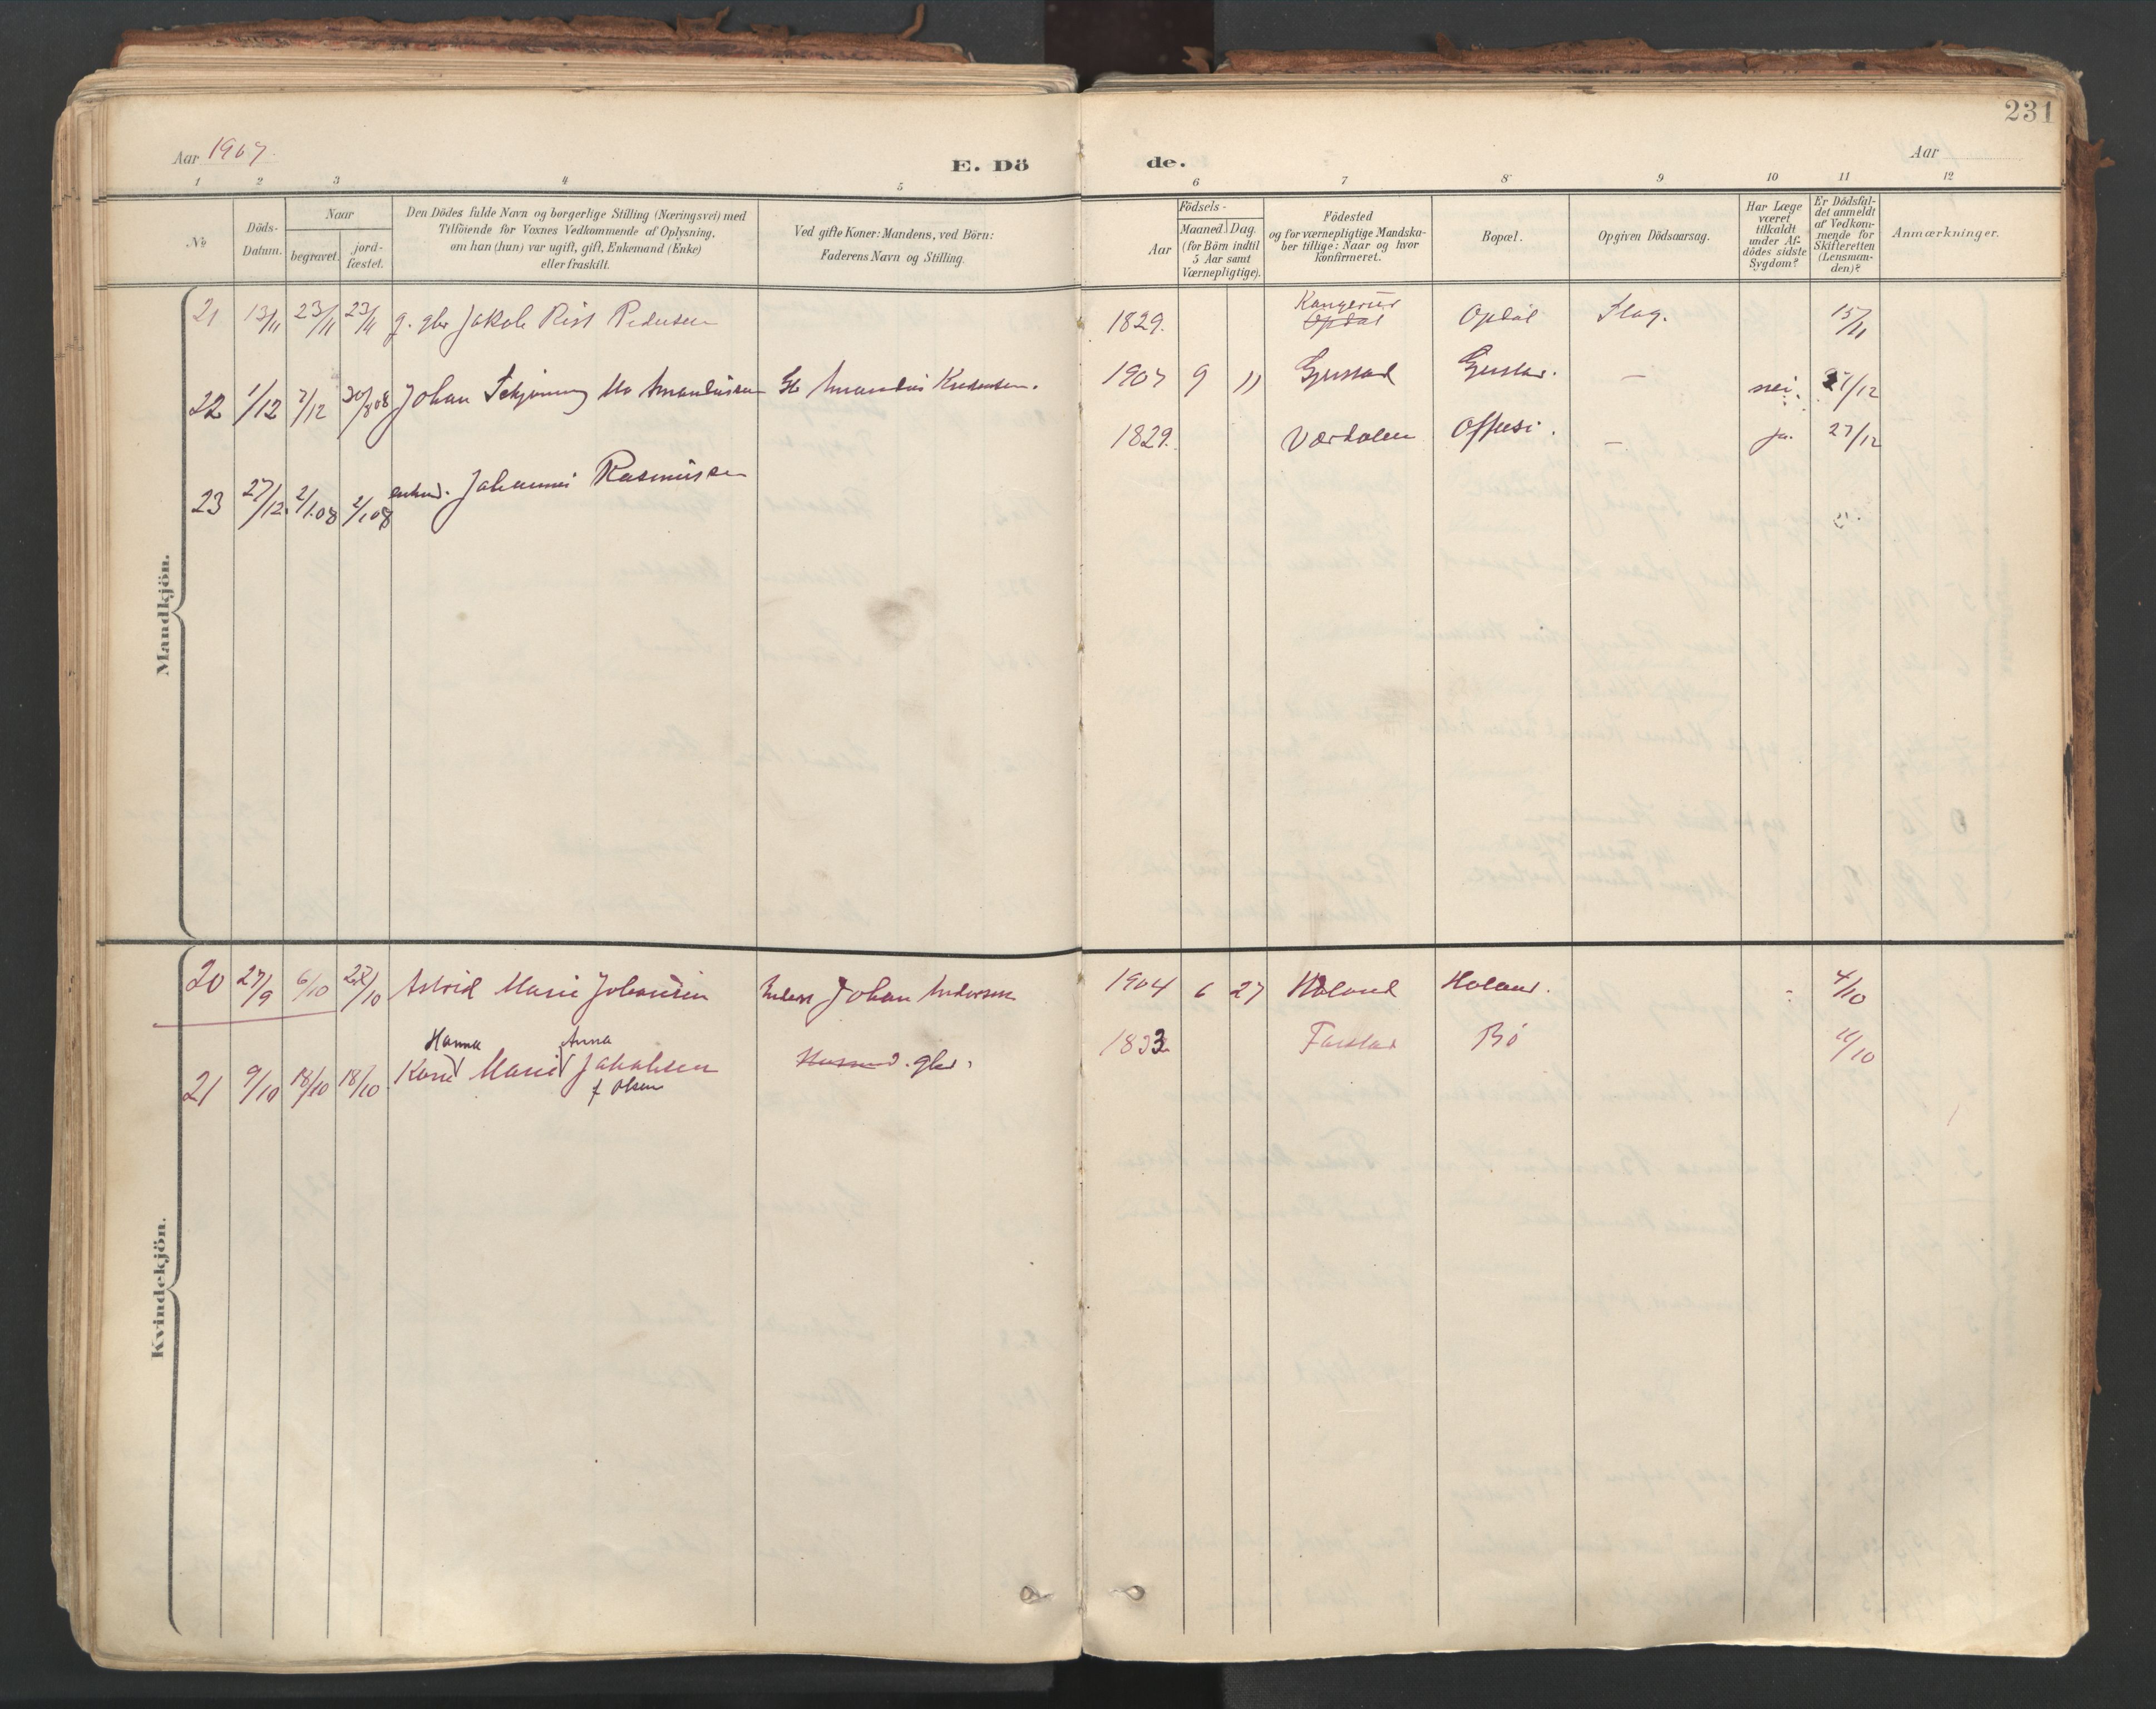 231
Aar 1907.
E. Dö de.
Aar
1 2 3 4 5 6 7 8 9 10 11 12
No
Döds-
Datum.
Naar
begravet.
jord-
fæstet.
Den Dödes fulde Navn og borgerlige Stilling (Næringsvei) med
Tilföiende for Voxnes Vedkommende af Oplysning,
om han (hun) var ugift, gift, Enkemand (Enke)
eller fraskilt.
Ved gifte Koner: Mandens, ved Börn:
Faderens Navn og Stilling.
Födsels-
Aar
Maaned.
Dag.
(for Börn indtil
5 Aar samt
Værnepligtige).
Födested
og for værnepligtige Mandska-
ber tillige: Naar og hvor
konfirmeret.
Bopæl.
Opgiven Dödsaarsag.
Har Læge
været
tilkaldt
under Af-
dödes sidste
Sygdom?
Er Dödsfal-
det anmeldt
af Vedkom-
mende for
Skifteretten
(Lensman-
den)?
Anmærkninger.
Mandkjön.
21 13/11 23/11 23/11 g. gbr Jakob Pedersen 1829. Opdal Opdal Slag. 15/11
22 1/12 7/12 30/8 08 Johan Mo Amandusen Amandus Knudsen. 1907 9 11 Gjustad Gjustad. — nei. 27/12
23 27/12. 2/1.08 2/1 08 enkmd. Johannes Rasmussen 1829. Værdalen — ja. 27/12
Kvindekjön.
20 27/9 6/10 22/10 Astrid Marie Johansen Johan Andersen 1904 6 27 Holand Holand. 4/10
Hanna Anna
21 9/10 18/10 18/10 Marie Jakobsen gbr. 1833 Farstad Bö 11/10
f Olsen